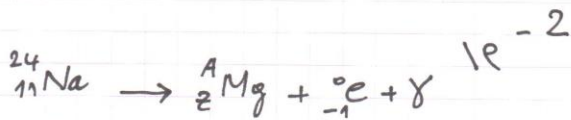 ²⁴₁₁Na → ᴬ_Z Mg + ⁰₋₁e + γ
1e - 2